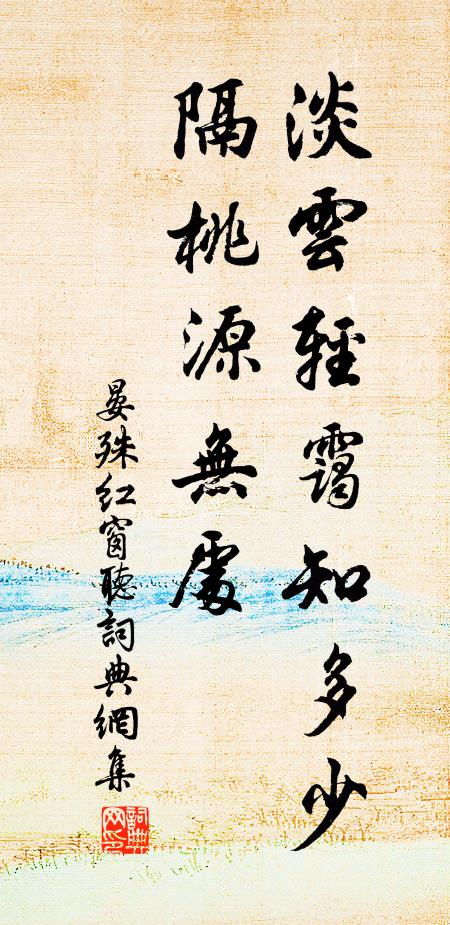 淡雲輕靄知多少
隔桃源無處
晏殊红窗聽詞典網集
詞典
网印